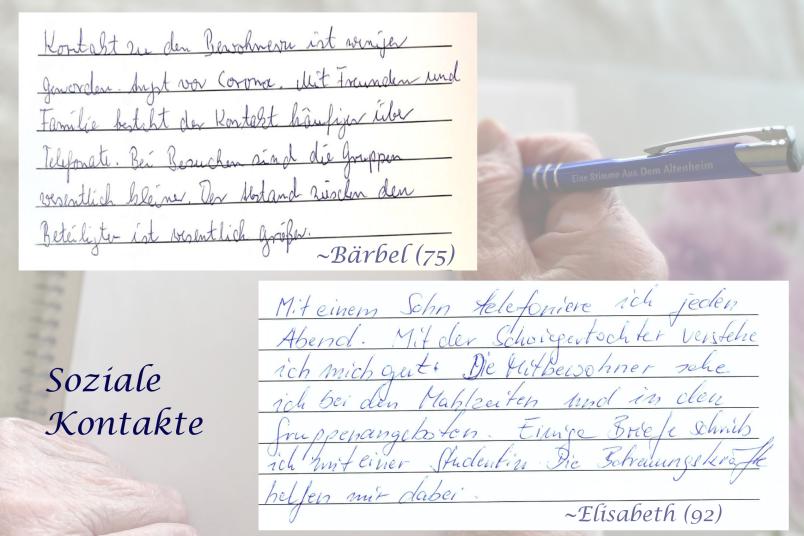 Kontakt zu den Bewohnern ist weniger
geworden. Angst vor Corona. Mit Freunden und
Familie besteht der Kontakt häufiger über
Telefonate. Bei Besuchen sind die Gruppen
wesentlich kleiner. Der Abstand zwischen den
Beteiligten ist wesentlich größer.
~Bärbel (75)
Eine Stimme Aus Dem Altenheim
Mit einem Sohn telefoniere ich jeden
Abend. Mit der Schwiegertochter verstehe
ich mich gut. Die Mitbewohner sehe
ich bei den Mahlzeiten und in den
Gruppenangeboten. Einige Briefe schrieb
ich mit einer Studentin. Die Betreuungskräfte
helfen mir dabei.
~Elisabeth (92)
Soziale
Kontakte